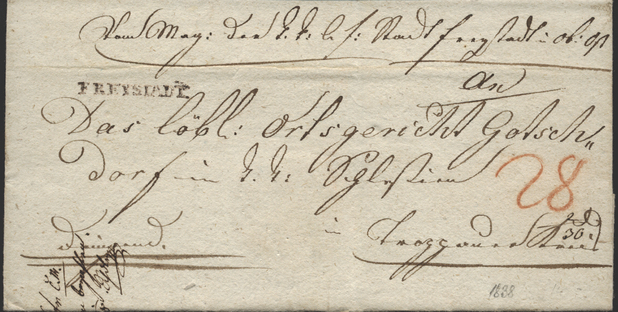 Vom Mag: der k: k: l: f: Stadt Freystadt in ob: Öst
FREYSTADT
An
Das löbl: Ortsgericht Gotsch„
dorf in k. k: Schlesien
28
Dringend.
in Troppauer Kreis
30
1838